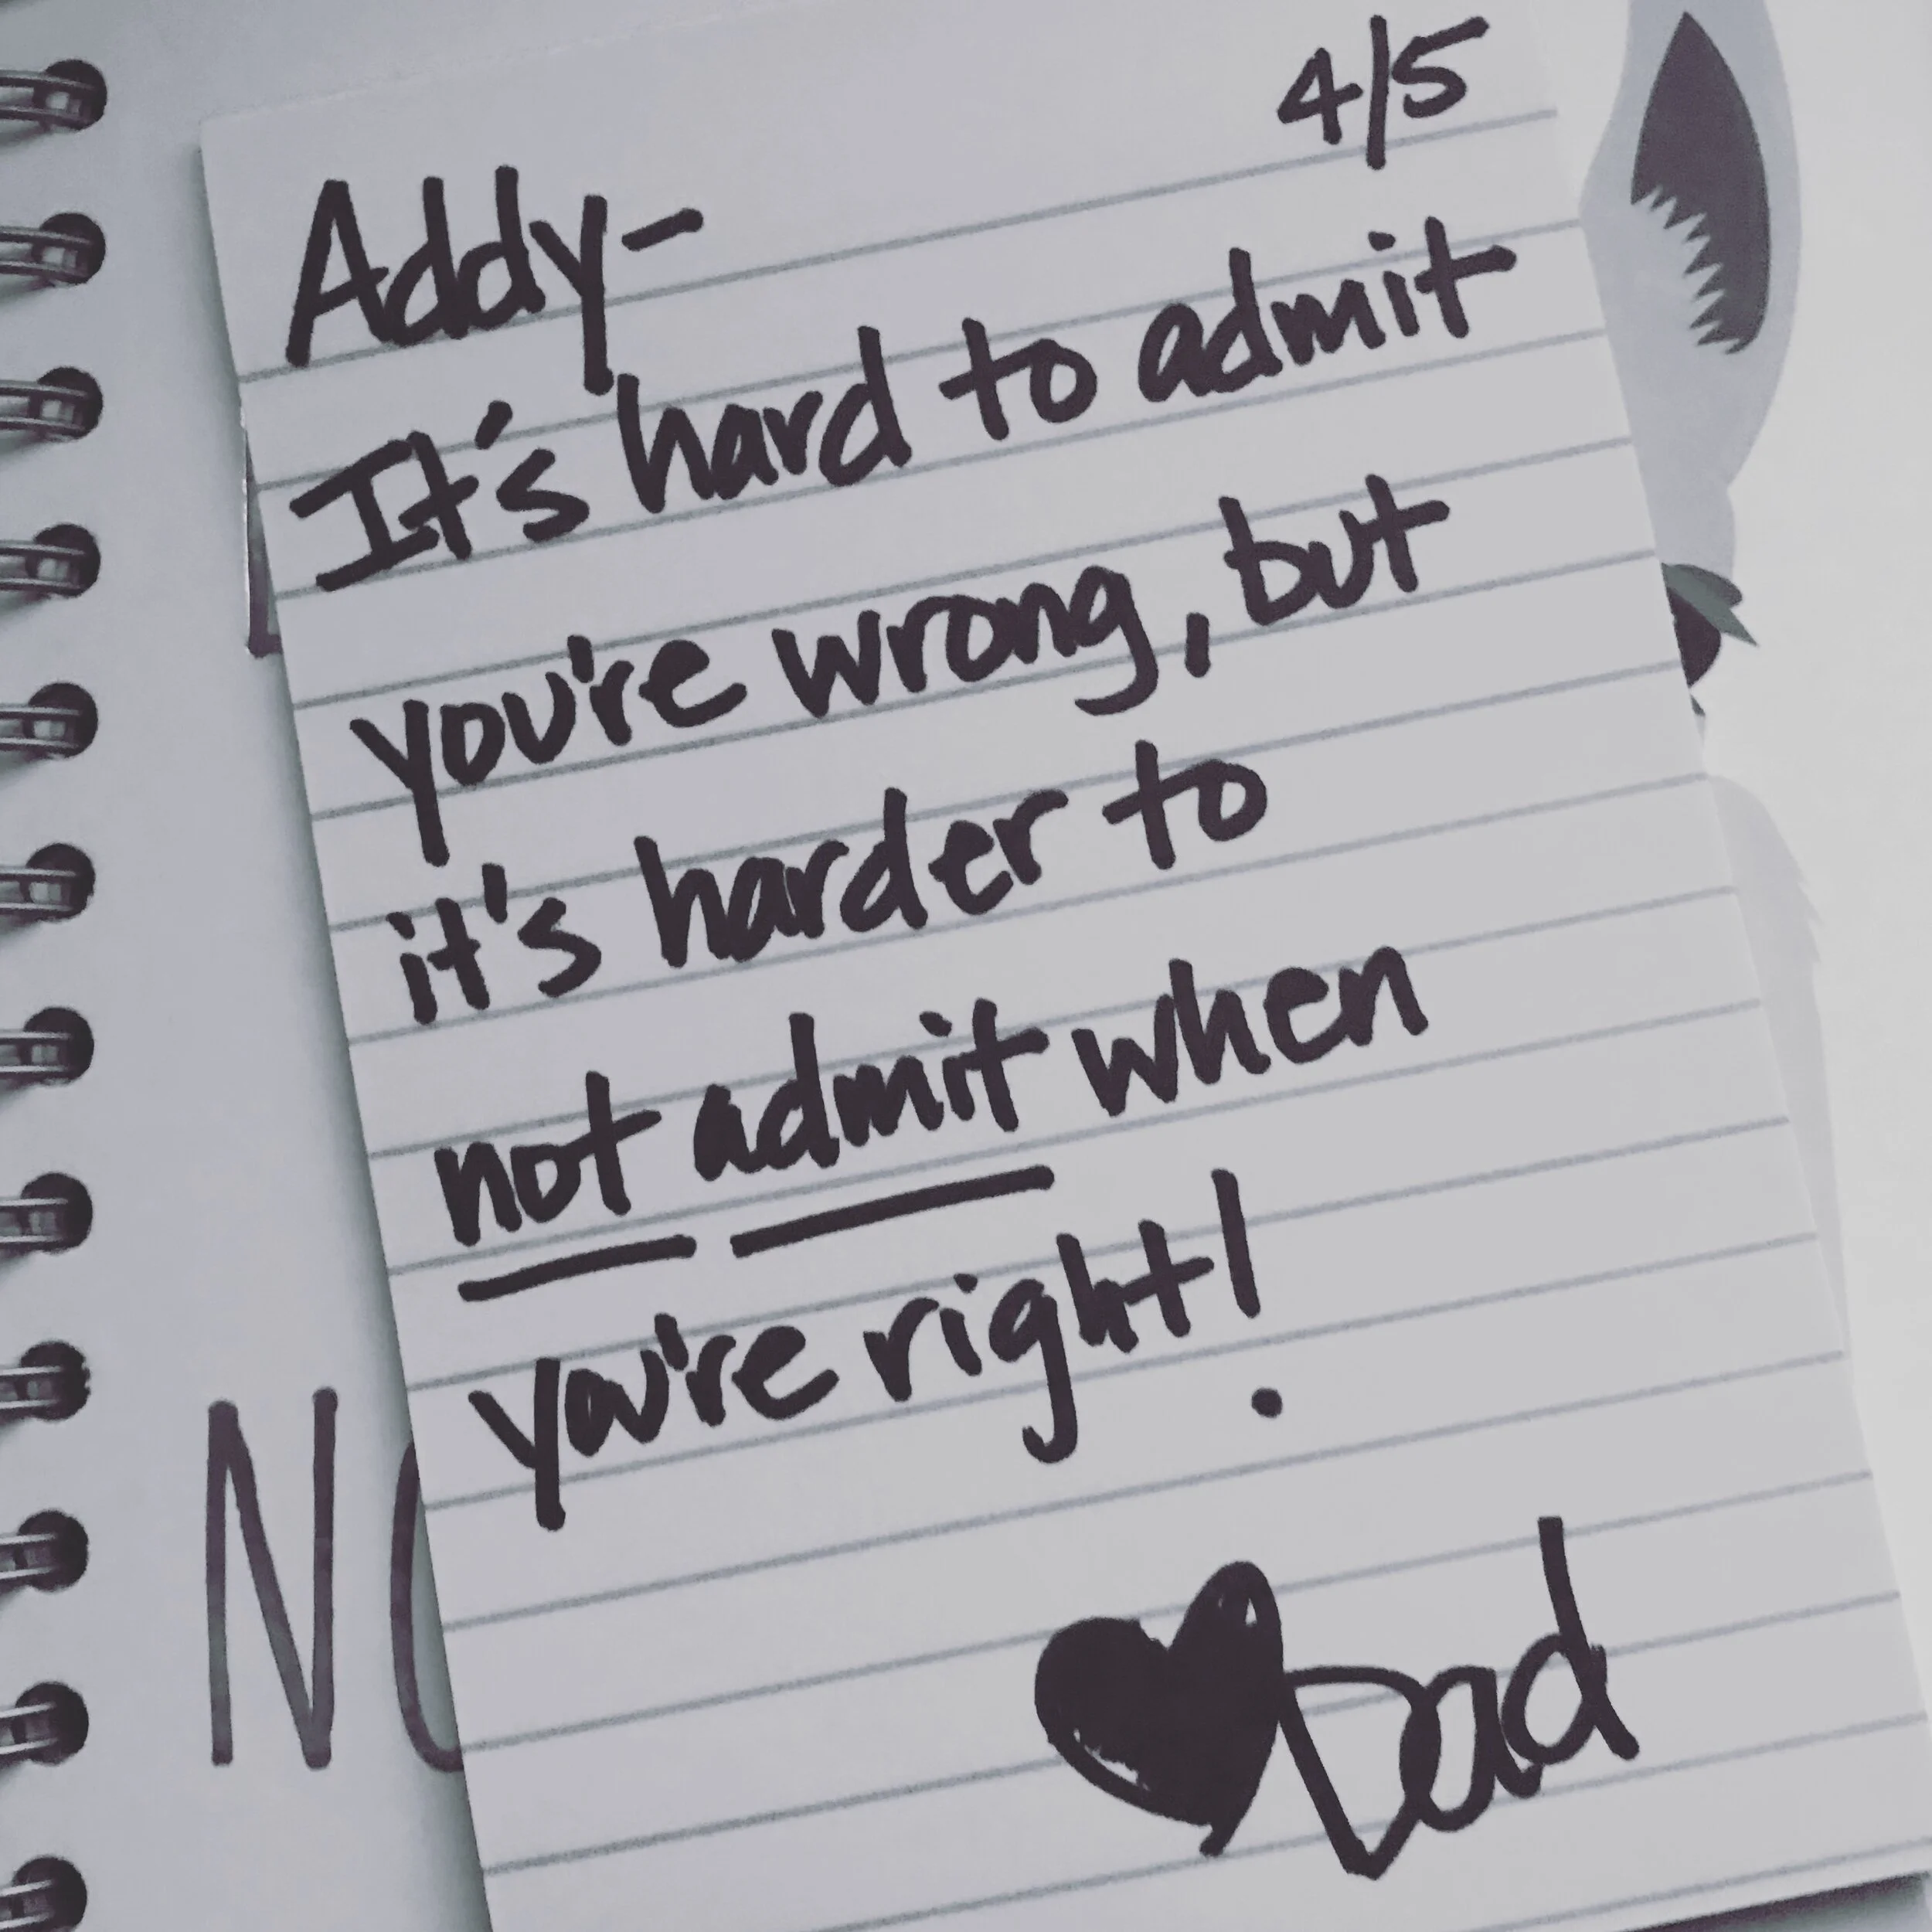 4/5
Addy-
It's hard to admit
you're wrong, but
it's harder to
not admit when
you're right!
♥Dad